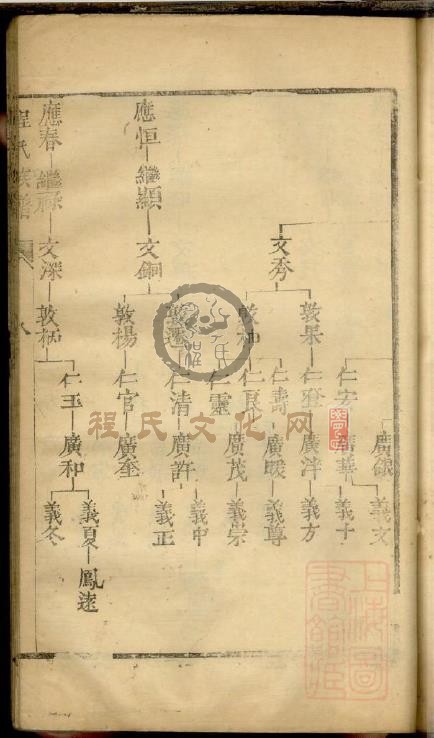 廣銀
義文
仁安
廣華
義十
敦果
仁登
廣泮
義方
文秀
仁壽
廣暖
義尊
敦和
仁良
廣茂
義崇
仁靈
義中
敦遷
仁清
廣許
義正
應恒
繼顯
文銅
敦楊
仁官
廣奎
義夏
鳳逵
應春
繼祿
文深
敦松
仁玉
廣和
義冬
程氏族譜
卷
八
程氏文化网
上海圖書館藏